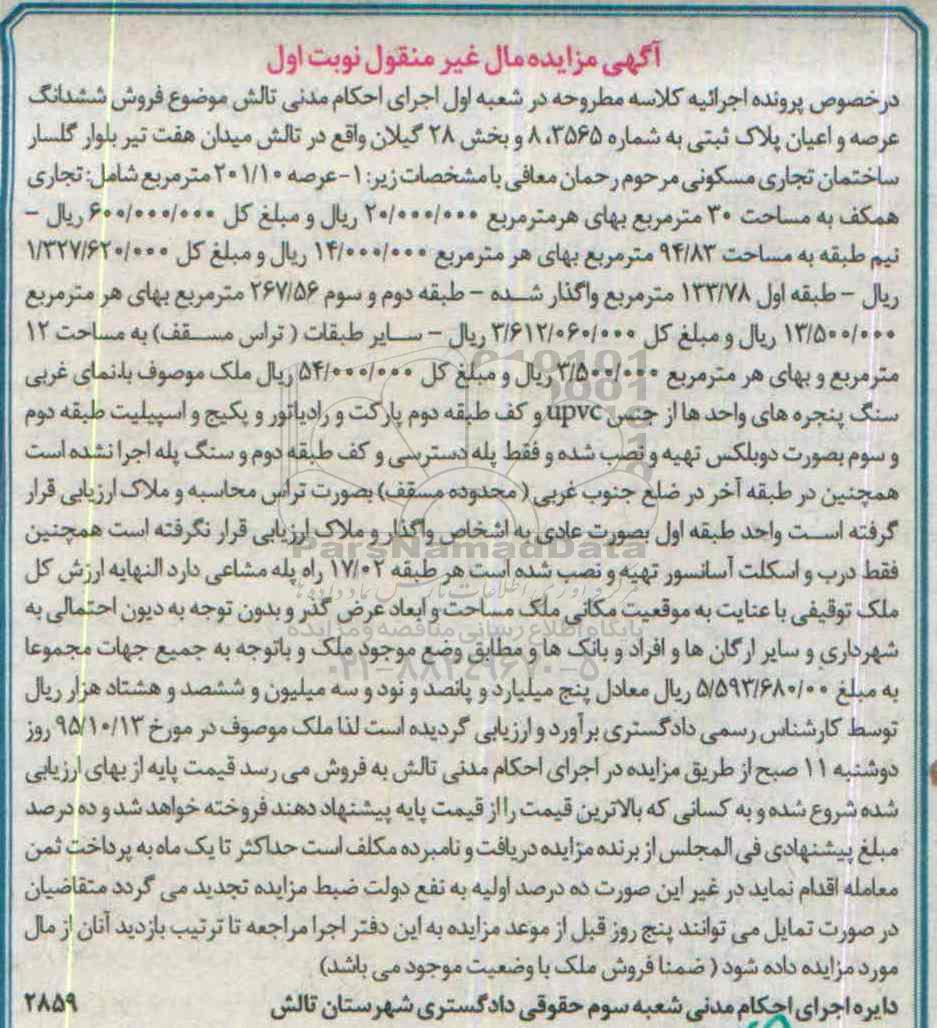 آگهی مزایده مال غیر منقول نوبت اول
درخصوص پرونده اجرائیه کلاسه مطروحه در شعبه اول اجرای احکام مدنی تالش موضوع فروش ششدانگ
عرصه و اعیان پلاک ثبتی به شماره ۸،۳۵۶۵ و بخش ۲۸ گیلان واقع در تالش میدان هفت تیر بلوار گلسار
ساختمان تجاری مسکونی مرحوم رحمان معافی با مشخصات زیر: ۱-عرصه ۲۰۱/۱۰ مترمربع شامل: تجاری
همکف به مساحت ۳۰ مترمربع بهای هرمترمربع ۲۰/۰۰۰/۰۰۰ ریال و مبلغ کل ۶۰۰/۰۰۰/۰۰۰ ریال -
نیم طبقه به مساحت ۹۴/۸۳ مترمربع بهای هر مترمربع ۱۴/۰۰۰/۰۰۰ ریال و مبلغ کل ۱/۳۲۷/۶۲۰/۰۰۰
ریال - طبقه اول ۱۳۳/۷۸ مترمربع واگذار شده - طبقه دوم و سوم ۲۶۷/۵۶ مترمربع بهای هر مترمربع
۱۳/۵۰۰/۰۰۰ ریال و مبلغ کل ۳/۶۱۲/۰۶۰/۰۰۰ ریال - سایر طبقات ( تراس مسقف) به مساحت ۱۲
مترمربع و بهای هر مترمربع ۳/۵۰۰/۰۰۰ ریال و مبلغ کل ۵۴/۰۰۰/۰۰۰ ریال ملک موصوف بانمای غربی
سنگ پنجره های واحد ها از جنس upvc و کف طبقه دوم پارکت و رادیاتور و پکیج و اسپیلیت طبقه دوم
و سوم بصورت دوبلکس تهیه و نصب شده و فقط پله دسترسی و کف طبقه دوم و سنگ پله اجرا نشده است
همچنین در طبقه آخر در ضلع جنوب غربی ( محدوده مسقف) بصورت تراس محاسبه و ملاک ارزیابی قرار
گرفته است واحد طبقه اول بصورت عادی به اشخاص واگذار و ملاک ارزیابی قرار نگرفته است همچنین
فقط درب و اسکلت آسانسور تهیه و نصب شده است هر طبقه ۱۷/۰۲ راه پله مشاعی دارد النهایه ارزش کل
ملک توقیفی با عنایت به موقعیت مکانی ملک مساحت و ابعاد عرض گذر و بدون توجه به دیون احتمالی به
شهرداری و سایر ارگان ها و افراد و بانک ها و مطابق وضع موجود ملک و باتوجه به جمیع جهات مجموعا
به مبلغ ۵/۵۹۳/۶۸۰/۰۰ ریال معادل پنج میلیارد و پانصد و نود و سه میلیون و ششصد و هشتاد هزار ریال
توسط کارشناس رسمی دادگستری برآورد و ارزیابی گردیده است لذا ملک موصوف در مورخ ۹۵/۱۰/۱۳ روز
دوشنبه ۱۱ صبح از طریق مزایده در اجرای احکام مدنی تالش به فروش می رسد قیمت پایه از بهای ارزیابی
شده شروع شده و به کسانی که بالاترین قیمت را از قیمت پایه پیشنهاد دهند فروخته خواهد شد و ده درصد
مبلغ پیشنهادی فی المجلس از برنده مزایده دریافت و نامبرده مکلف است حداکثر تا یک ماه به پرداخت ثمن
معامله اقدام نماید در غیر این صورت ده درصد اولیه به نفع دولت ضبط مزایده تجدید می گردد متقاضیان
در صورت تمایل می توانند پنج روز قبل از موعد مزایده به این دفتر اجرا مراجعه تا ترتیب بازدید آنان از مال
مورد مزایده داده شود ( ضمنا فروش ملک با وضعیت موجود می باشد)
دایره اجرای احکام مدنی شعبه سوم حقوقی دادگستری شهرستان تالش ۲۸۵۹
ParsNamadData
پایگاه اطلاع رسانی مناقصه و مزایده
۰۲۱-۸۸۳۴۹۶۷۰-۵